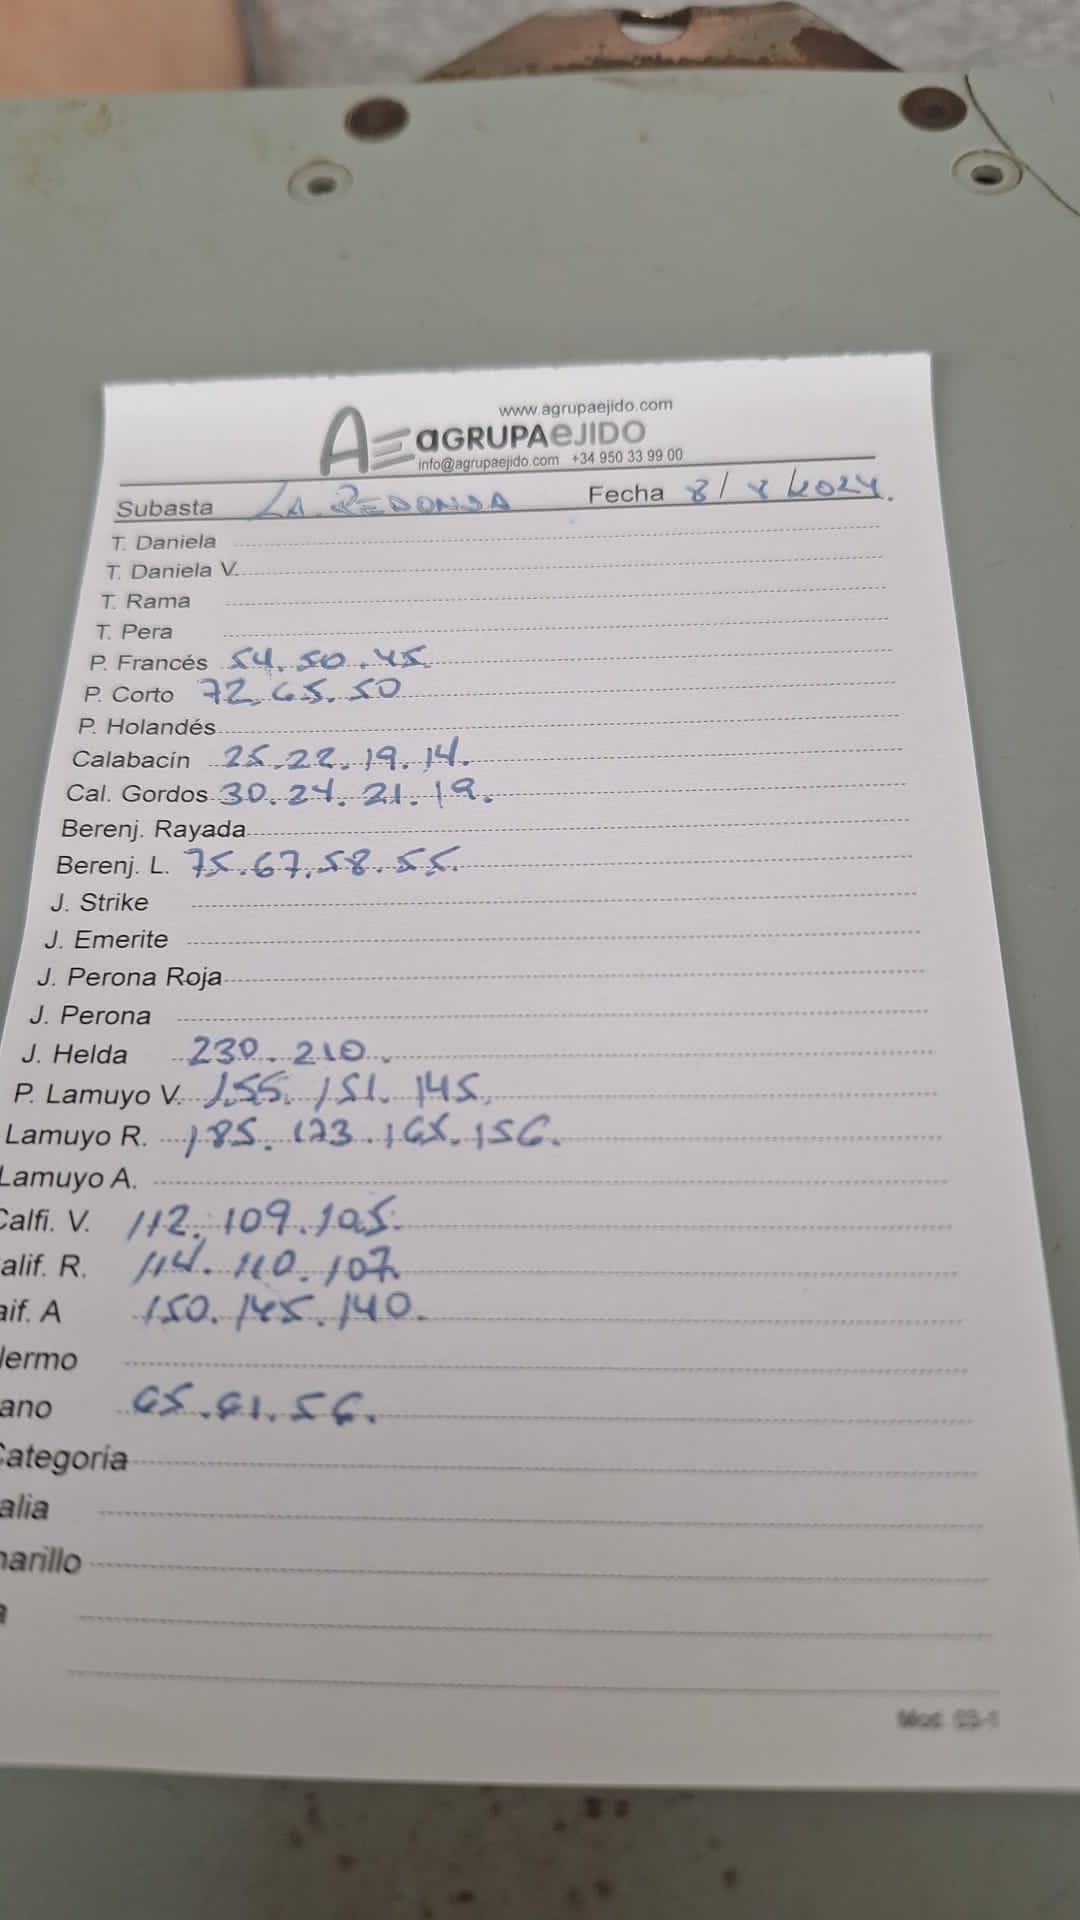 www.agrupaejido.com
AE aGRUPAeJIDO
info@agrupaejido.com +34 950 33 99 00
Subasta LA REDONDA Fecha 8/8/2024.
T. Daniela
T. Daniela V.
T. Rama
T. Pera
P. Francés 54. 50. 45
P. Corto 72. 65. 50
P. Holandés
Calabacín 25. 22. 19. 14.
Cal. Gordos 30. 24. 21. 19.
Berenj. Rayada
Berenj. L. 75. 67. 58. 55.
J. Strike
J. Emerite
J. Perona Roja
J. Perona
J. Helda 230. 210.
P. Lamuyo V. 155. 151. 145.
Lamuyo R. 185. 173. 165. 156.
Lamuyo A.
Calfi. V. 112. 109. 105.
alif. R. 114. 110. 107.
aif. A 150. 145. 140.
lermo
ano 65. 61. 56.
Categoría
alia
marillo
a